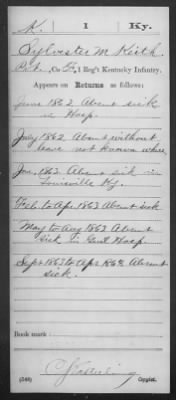 K. 1 Ky.
Sylvester M Keith
Pvt., Co. F, 1 Reg't Kentucky Infantry.
Appears on
Returns as follows:
June 1862 Absent sick
in Hosp.
July 1862 Absent without
leave not known where
Jan. 1863 Absent sick in
Louisville Ky.
Feb. to Apr. 1863 Absent sick
May to Aug 1863 Absent
Sick in Genl Hosp.
Sept 1863 to Apr. 1864 Absent
sick.
Book mark:
(546) Copyist.